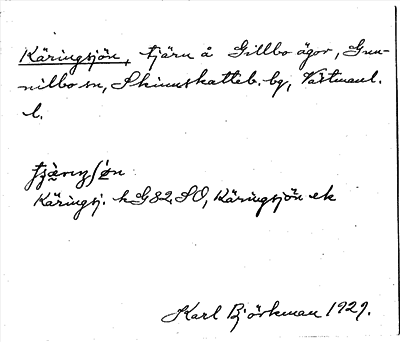 Käringsjön, tjärn å Gillbo ägor, Gun-
nilbo sn, Skinnskatteb. bg, Västmanl.
l.
Käringsj. hG82 SO, Käringsjön ek
Karl Björkman 1929.